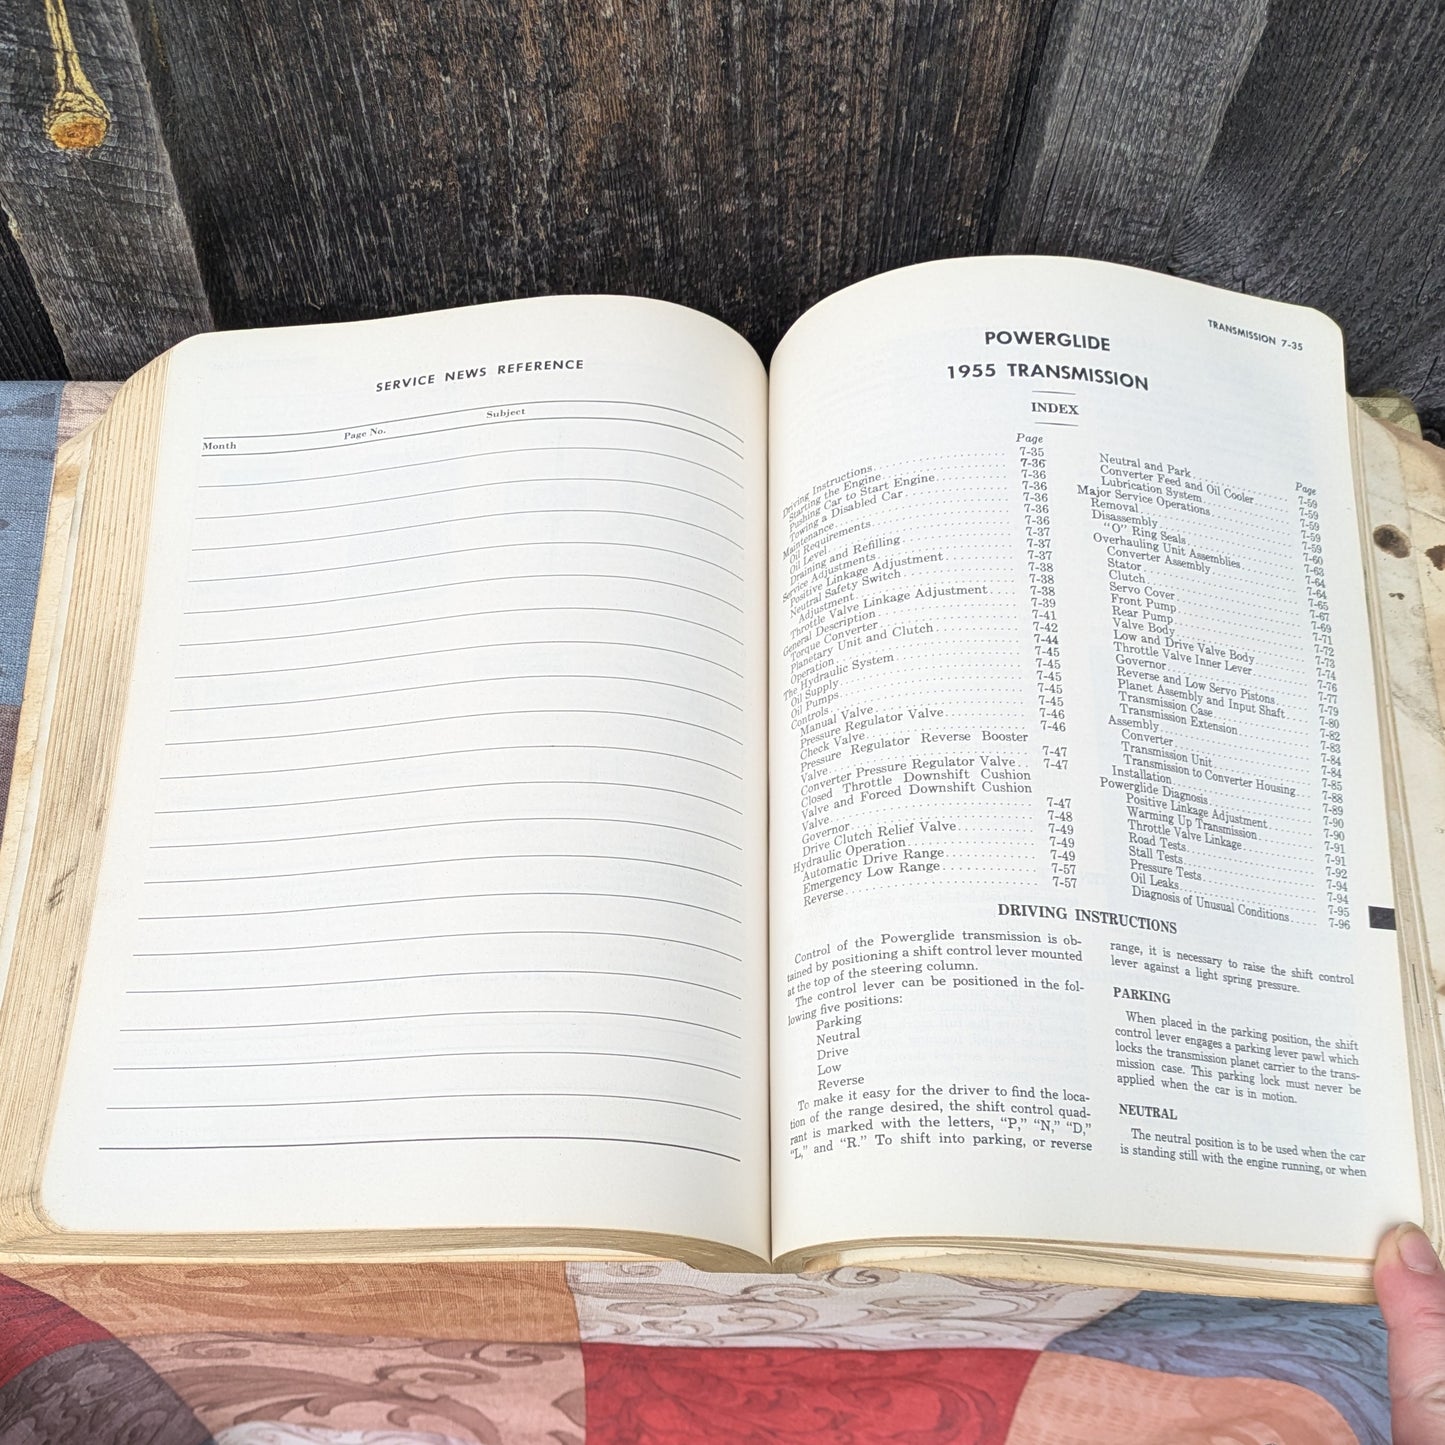 SERVICE NEWS REFERENCE
Month Page No. Subject
TRANSMISSION 7-35
POWERGLIDE
1955 TRANSMISSION
INDEX
Page
Driving Instructions 7-35
Starting the Engine 7-36
Pushing Car to Start Engine 7-36
Towing a Disabled Car 7-36
Maintenance 7-36
Oil Requirements 7-36
Oil Level 7-36
Draining and Refilling 7-37
Service Adjustments 7-37
Positive Linkage Adjustment 7-37
Neutral Safety Switch
Adjustment 7-38
Throttle Valve Linkage Adjustment 7-38
General Description 7-38
Torque Converter 7-39
Planetary Unit and Clutch 7-41
Operation 7-42
The Hydraulic System 7-44
Oil Supply 7-45
Oil Pumps 7-45
Controls 7-45
Manual Valve 7-45
Pressure Regulator Valve 7-45
Check Valve 7-46
Pressure Regulator Reverse Booster
Valve 7-46
Converter Pressure Regulator Valve 7-47
Closed Throttle Downshift Cushion
Valve and Forced Downshift Cushion
Valve 7-47
Governor 7-47
Drive Clutch Relief Valve 7-48
Hydraulic Operation 7-49
Automatic Drive Range 7-49
Emergency Low Range 7-57
Reverse 7-57
Page
Neutral and Park 7-59
Converter Feed and Oil Cooler 7-59
Lubrication System 7-59
Major Service Operations 7-59
Removal 7-59
Disassembly 7-60
"O" Ring Seals 7-63
Overhauling Unit Assemblies 7-64
Converter Assembly 7-64
Stator 7-65
Clutch 7-67
Servo Cover 7-69
Front Pump 7-71
Rear Pump 7-72
Valve Body 7-73
Low and Drive Valve Body 7-74
Throttle Valve Inner Lever 7-76
Governor 7-77
Reverse and Low Servo Pistons 7-79
Planet Assembly and Input Shaft 7-80
Transmission Case 7-82
Transmission Extension 7-83
Assembly 7-84
Converter 7-84
Transmission Unit 7-85
Transmission to Converter Housing 7-88
Installation 7-89
Powerglide Diagnosis 7-90
Positive Linkage Adjustment 7-90
Warming Up Transmission 7-91
Throttle Valve Linkage 7-91
Road Tests 7-92
Stall Tests 7-94
Pressure Tests 7-94
Oil Leaks 7-95
Diagnosis of Unusual Conditions 7-96
DRIVING INSTRUCTIONS
Control of the Powerglide transmission is ob-
tained by positioning a shift control lever mounted
at the top of the steering column.
The control lever can be positioned in the fol-
lowing five positions:
Parking
Neutral
Drive
Low
Reverse
To make it easy for the driver to find the loca-
tion of the range desired, the shift control quad-
rant is marked with the letters, "P," "N," "D,"
"L," and "R." To shift into parking, or reverse
range, it is necessary to raise the shift control
lever against a light spring pressure.
PARKING
When placed in the parking position, the shift
control lever engages a parking lever pawl which
locks the transmission planet carrier to the trans-
mission case. This parking lock must never be
applied when the car is in motion.
NEUTRAL
The neutral position is to be used when the car
is standing still with the engine running, or when